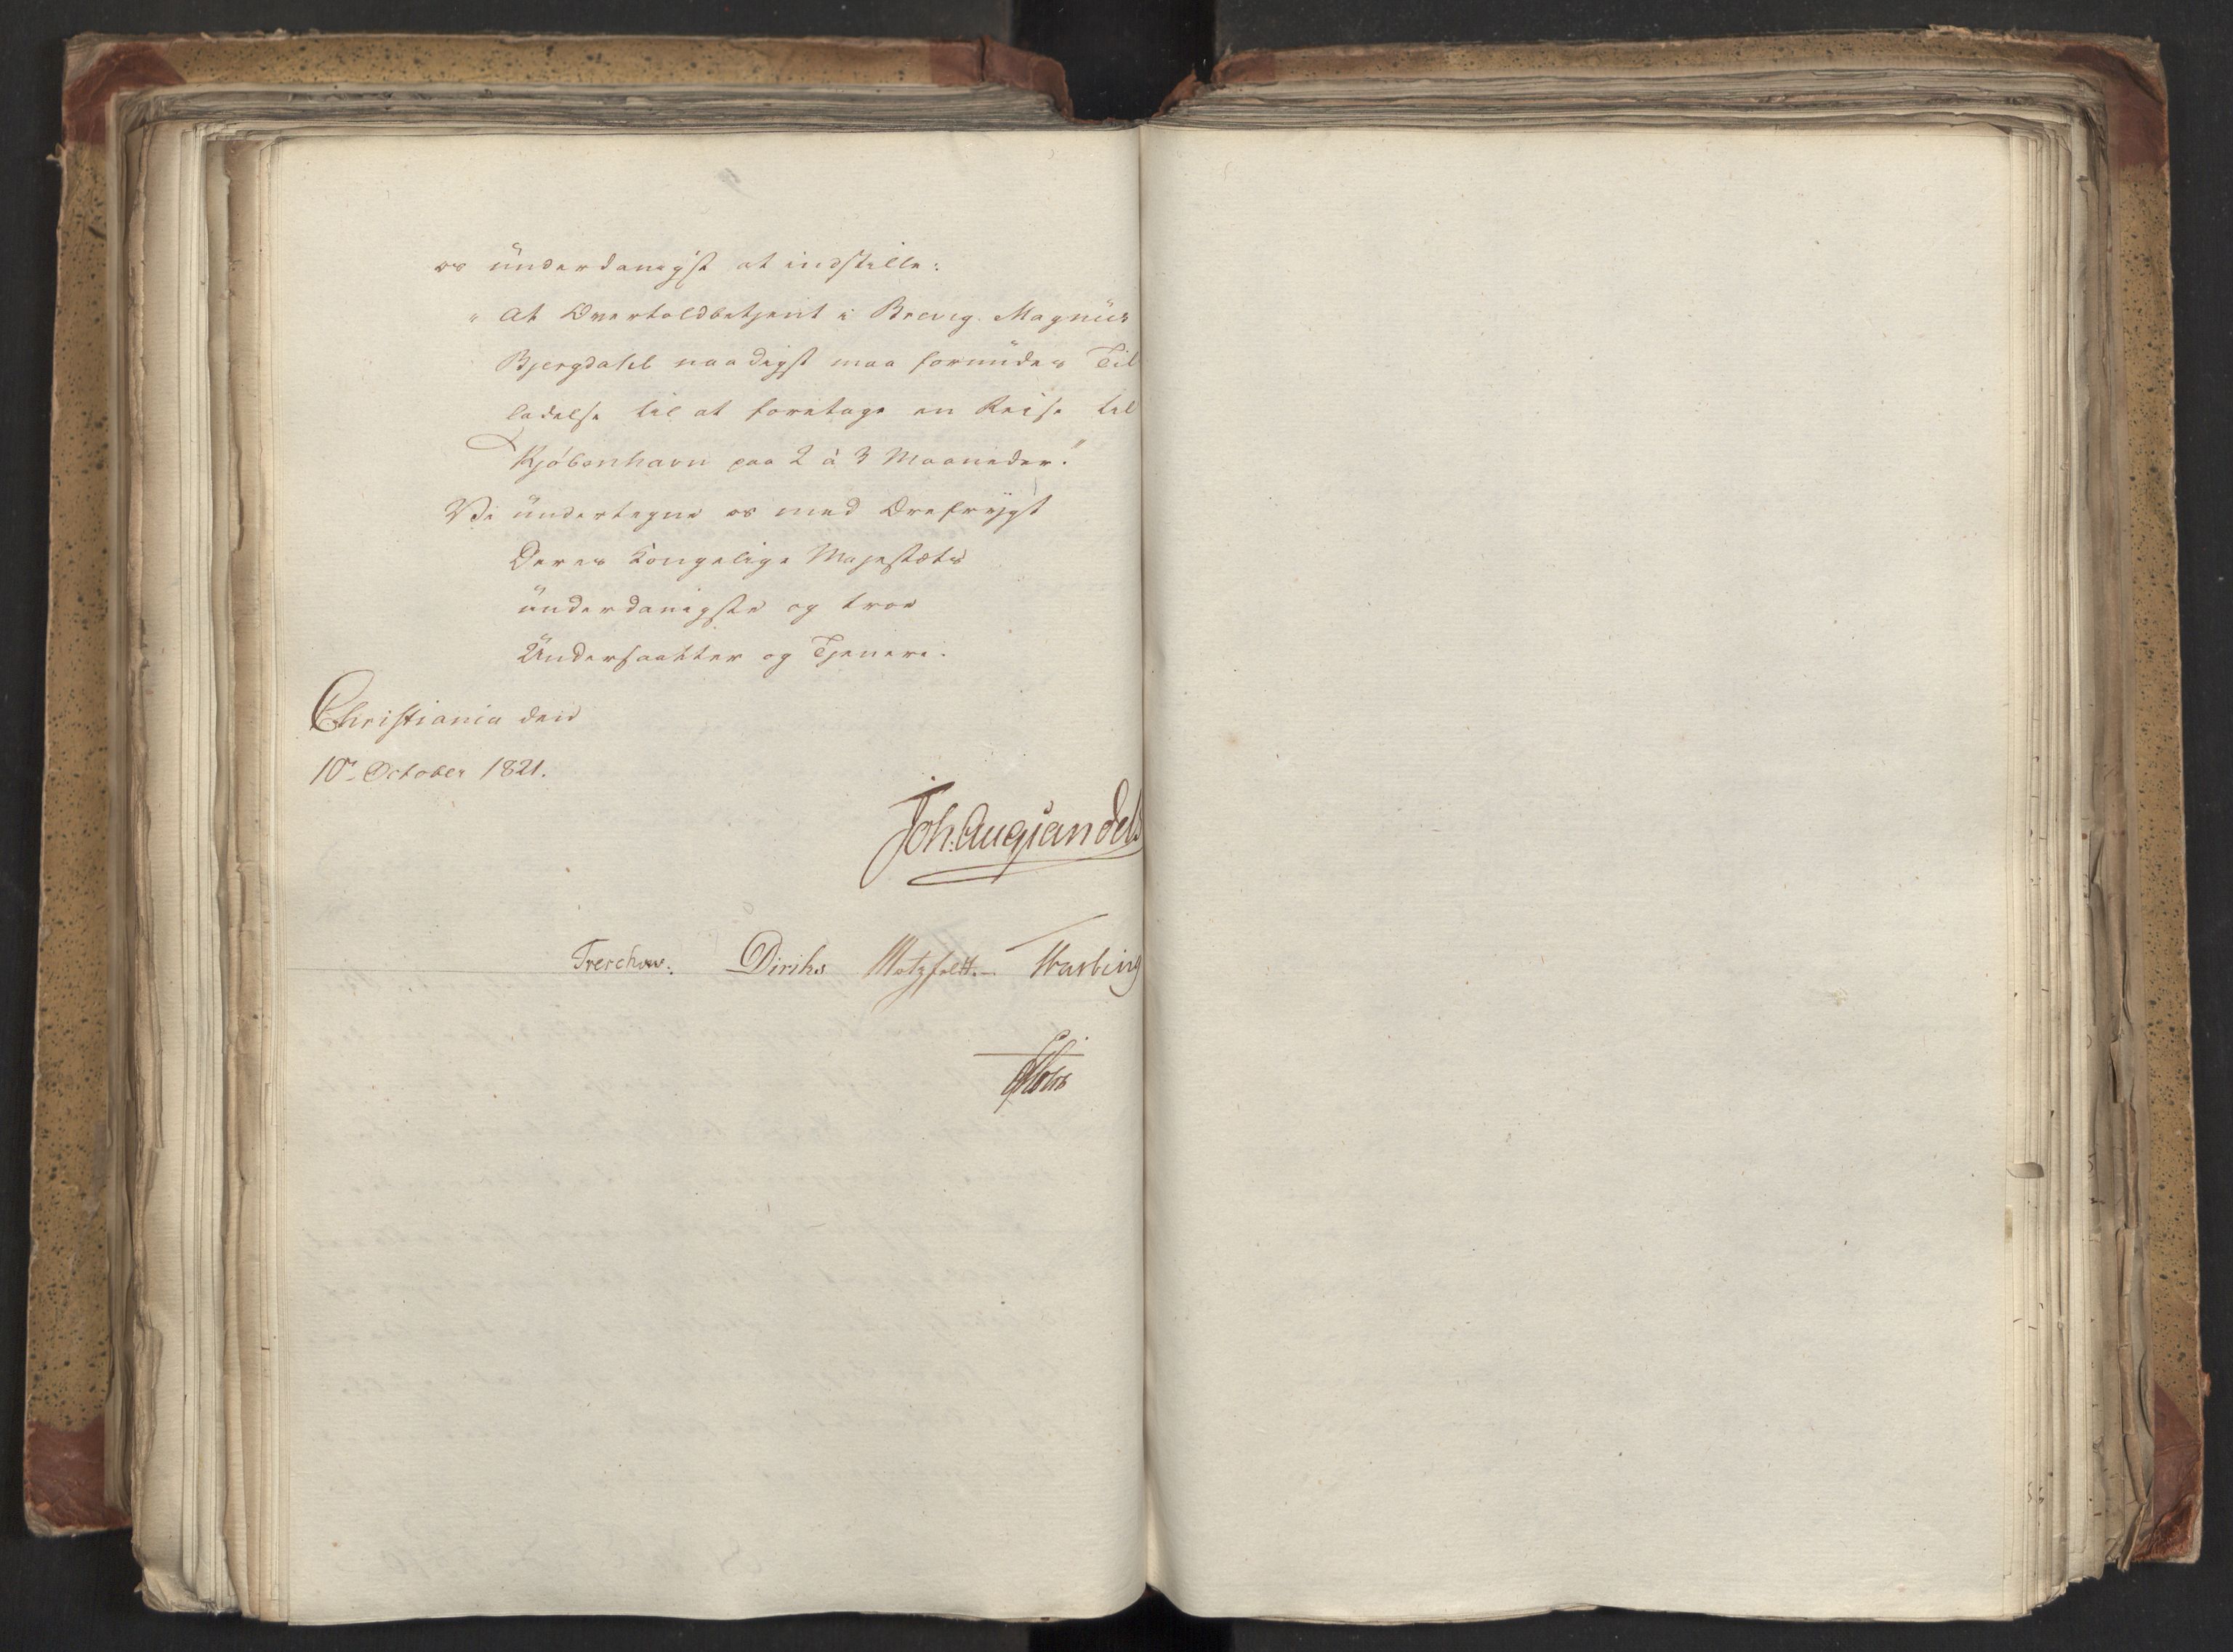 os underdanigst at indstille:
"At Overtoldbetjent i Brevig Magnus
Bjergdahl naadigst maa forundes Til
ladelse til at foretage en Reise til
Kjöbenhavn paa 2 à 3 Maaneder."
Vi undertegne os med Ærefrygt
Deres Kongelige Majestæts
underdanigste og troe
Undersaatter og Tjenere.
Christiania den
10de October 1821.
Joh: Aug Sandels
Treschow. Diriks Motzfeldt. Fasting
Holst